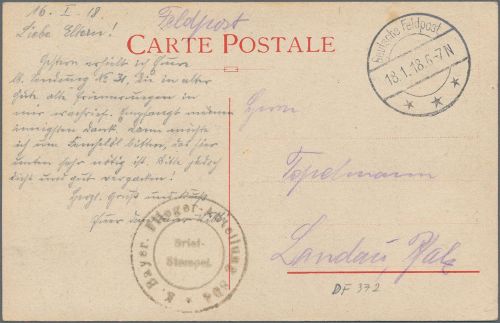 16. I. 18.
Feldpost
Liebe Eltern!
CARTE POSTALE
Deutsche Feldpost
18.1.18.6-7N
Gestern erhielt ich Eure
Sendung No 21, die in alter
Güte alte Erinnerungen in
mir wachrief. Empfangt meinen
innigsten Dank. Dann möchte
ich um bitten, das hier
unten sehr nötig ist. Bitte jedoch
nicht und gut verpacken!
Herzl. Gruß und Kuß
Euer
Herrn
Topelmann
Landau, Pfalz
K. Bayer. Flieger-Abteilung 304
Brief-
Stempel.
DF 372